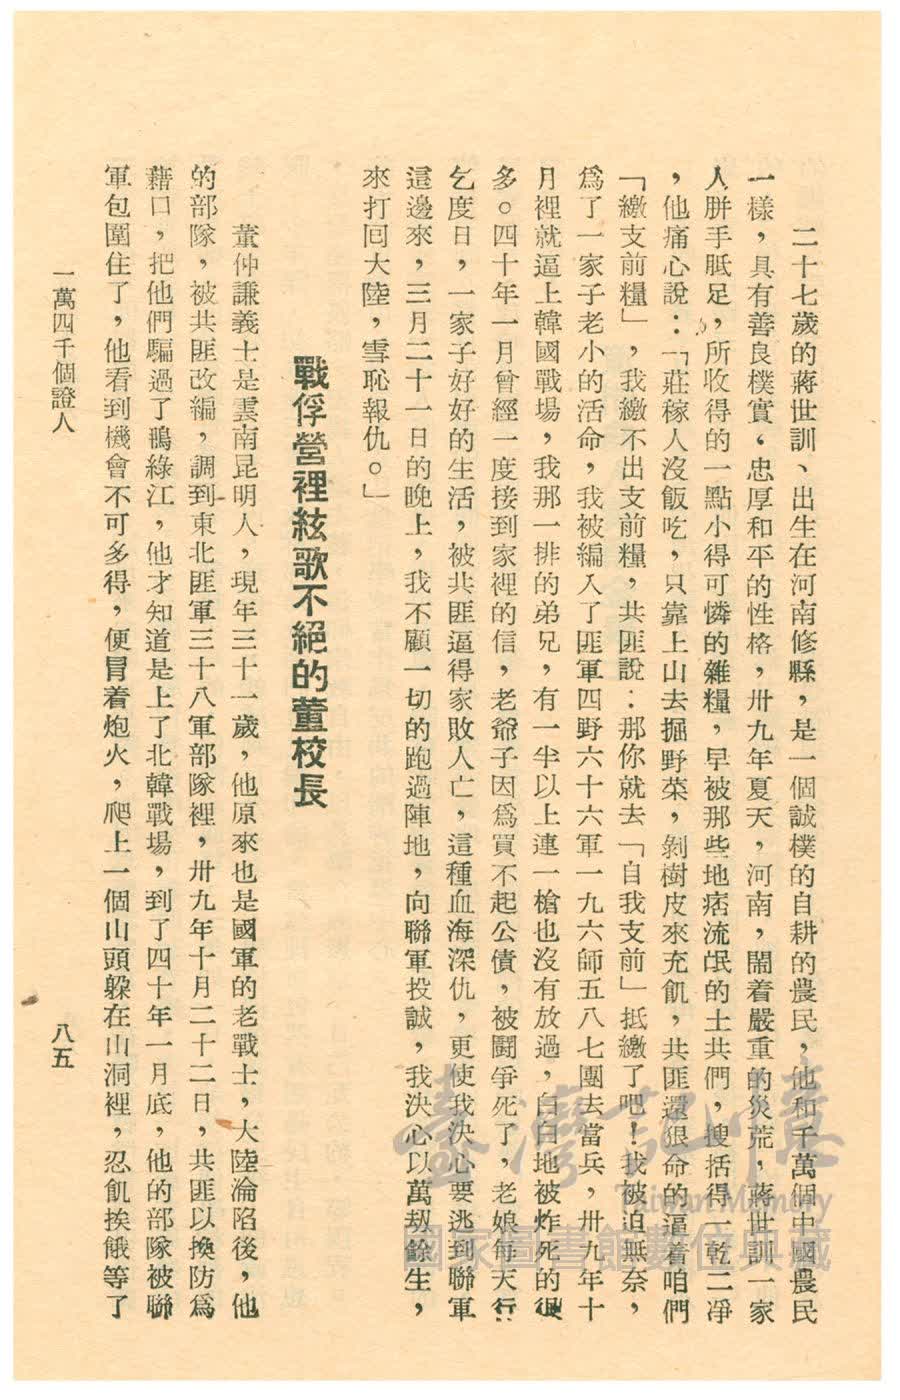 二十七歲的蔣世訓、出生在河南修縣，是一個誠樸的自耕的農民，他和千萬個中國農民
一樣，具有善良樸實，忠厚和平的性格，卅九年夏天，河南，鬧着嚴重的災荒，蔣世訓一家
人胼手胝足，所收得的一點小得可憐的雜糧，早被那些地痞流氓的土共們，搜括得一乾二淨
，他痛心說：「莊稼人沒飯吃，只靠上山去掘野菜，剝樹皮來充飢，共匪還狠命的逼着咱們
「繳支前糧」，我繳不出支前糧，共匪說：那你就去「自我支前」抵繳了吧！我被迫無奈，
爲了一家子老小的活命，我被編入了匪軍四野六十六軍一九六師五八七團去當兵，卅九年十
月裡就逼上韓國戰場，我那一排的弟兄，有一半以上連一槍也沒有放過，白白地被炸死的很
多。四十年一月曾經一度接到家裡的信，老爺子因爲買不起公債，被鬪爭死了，老娘每天行
乞度日，一家子好好的生活，被共匪逼得家敗人亡，這種血海深仇，更使我決心要逃到聯軍
這邊來，三月二十一日的晚上，我不顧一切的跑過陣地，向聯軍投誠，我決心以萬刼餘生，
來打回大陸，雪恥報仇。」
戰俘營裡絃歌不絕的董校長
董仲謙義士是雲南昆明人，現年三十一歲，他原來也是國軍的老戰士，大陸淪陷後，他
的部隊，被共匪改編，調到東北匪軍三十八軍部隊裡，卅九年十月二十二日，共匪以換防爲
藉口，把他們騙過了鴨綠江，他才知道是上了北韓戰場，到了四十年一月底，他的部隊被聯
軍包圍住了，他看到機會不可多得，便冒着炮火，爬上一個山頭躲在山洞裡，忍飢挨餓等了
一萬四千個證人
八五
臺灣記憶
Taiwan Memory
國家圖書館數位典藏